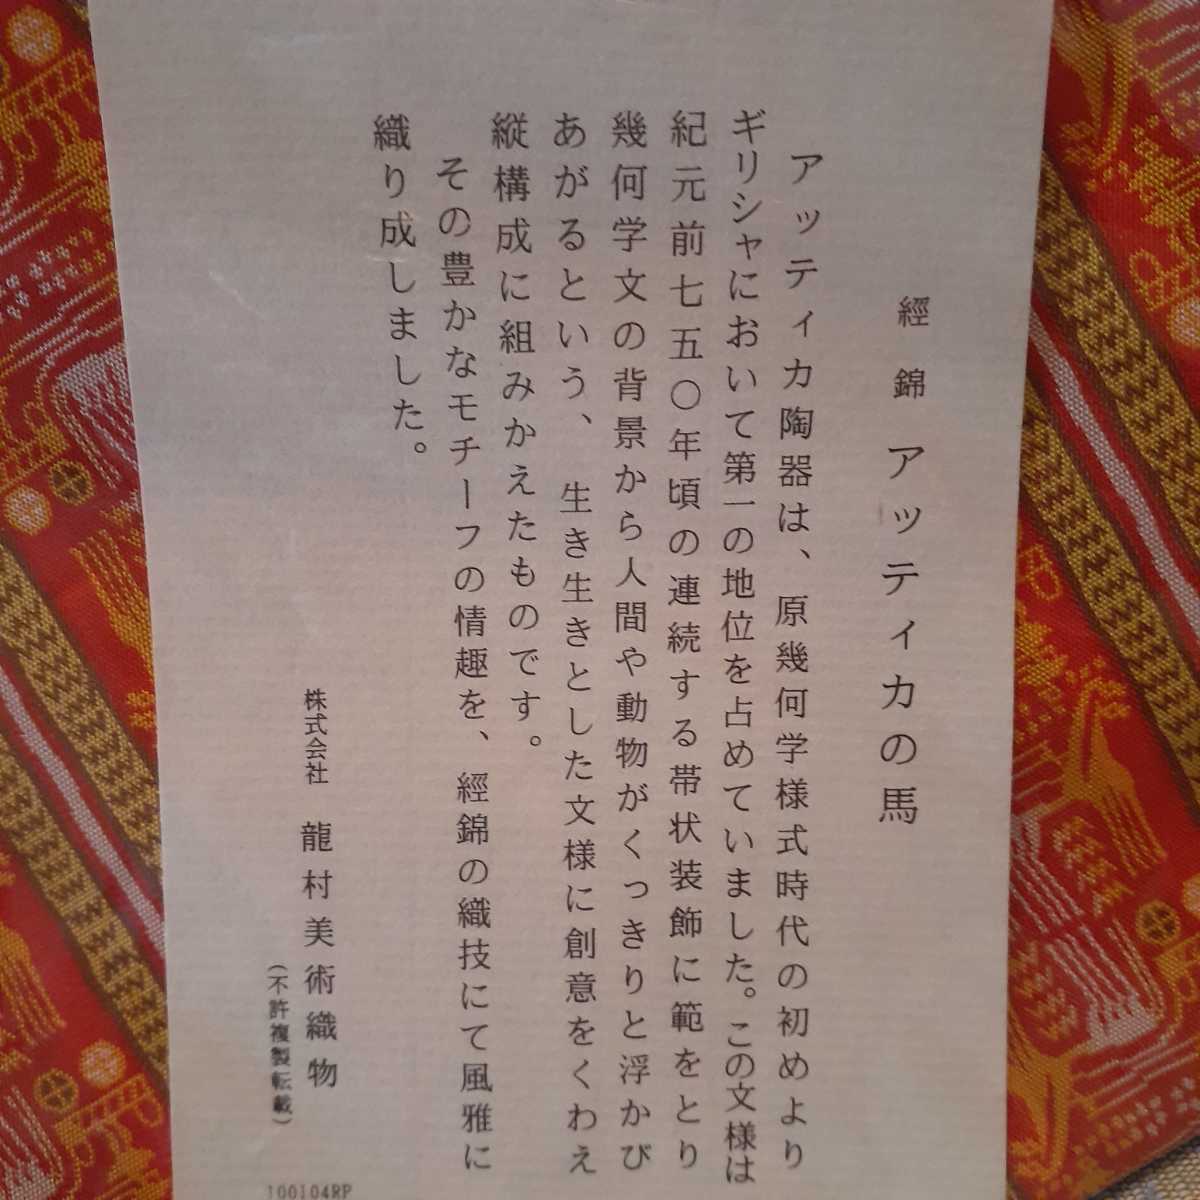 經錦 アッティカの馬
アッティカ陶器は、原幾何学様式時代の初めより
ギリシャにおいて第一の地位を占めていました。この文様は
紀元前七五〇年頃の連続する帯状装飾に範をとり
幾何学文の背景から人間や動物がくっきりと浮かび
あがるという、生き生きとした文様に創意をくわえ
縦構成に組みかえたものです。
その豊かなモチーフの情趣を、經錦の織技にて風雅に
織り成しました。
株式会社 龍村美術織物
(不許複製転載)
100104RP